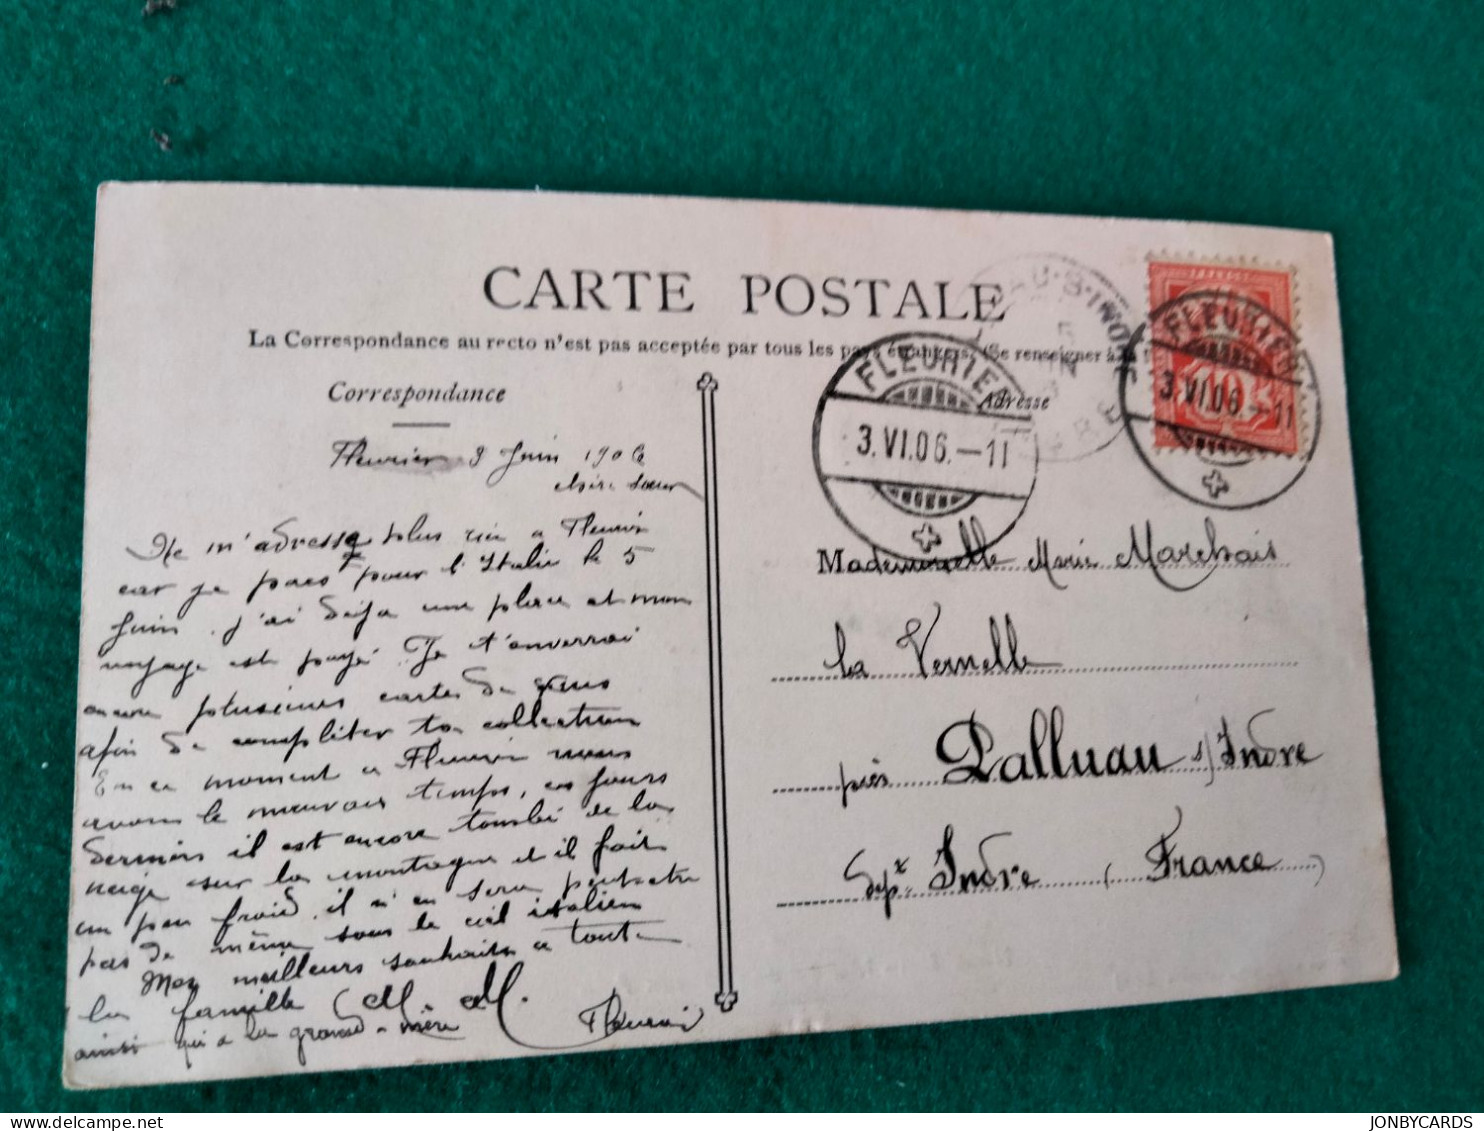 CARTE POSTALE
La Correspondance au recto n'est pas acceptée par tous les pays étrangers. (Se renseigner à la
Correspondance
Adresse
FLEURIER
3.VI.06.-11
FLEURIER
3.VI.06.-11
10
U-S-INDRE
5
Fleurier 3 Juin 1906
chère sœur
Ne m'adresse plus rien a Fleurier
car je pars pour l'Italie le 5
Juin. j'ai déja une place et mon
voyage est payé. Je t'enverrai
encore plusieurs cartes de
afin de compléter ta collection
En ce moment a Fleurier nous
avons le mauvais temps, ces jours
derniers il est encore tombé de la
neige sur la montagne et il fait
un peu froid, il n'en sera peut etre
pas de même sous le ciel italien
Mes meilleurs souhaits a toute
la famille M. M.
ainsi qu'a la grand-mère Fleurier
Mademoiselle Marie Marchais
la Vernelle
près Palluau s/Indre
Dépt Indre (France)
JONBYCARDS